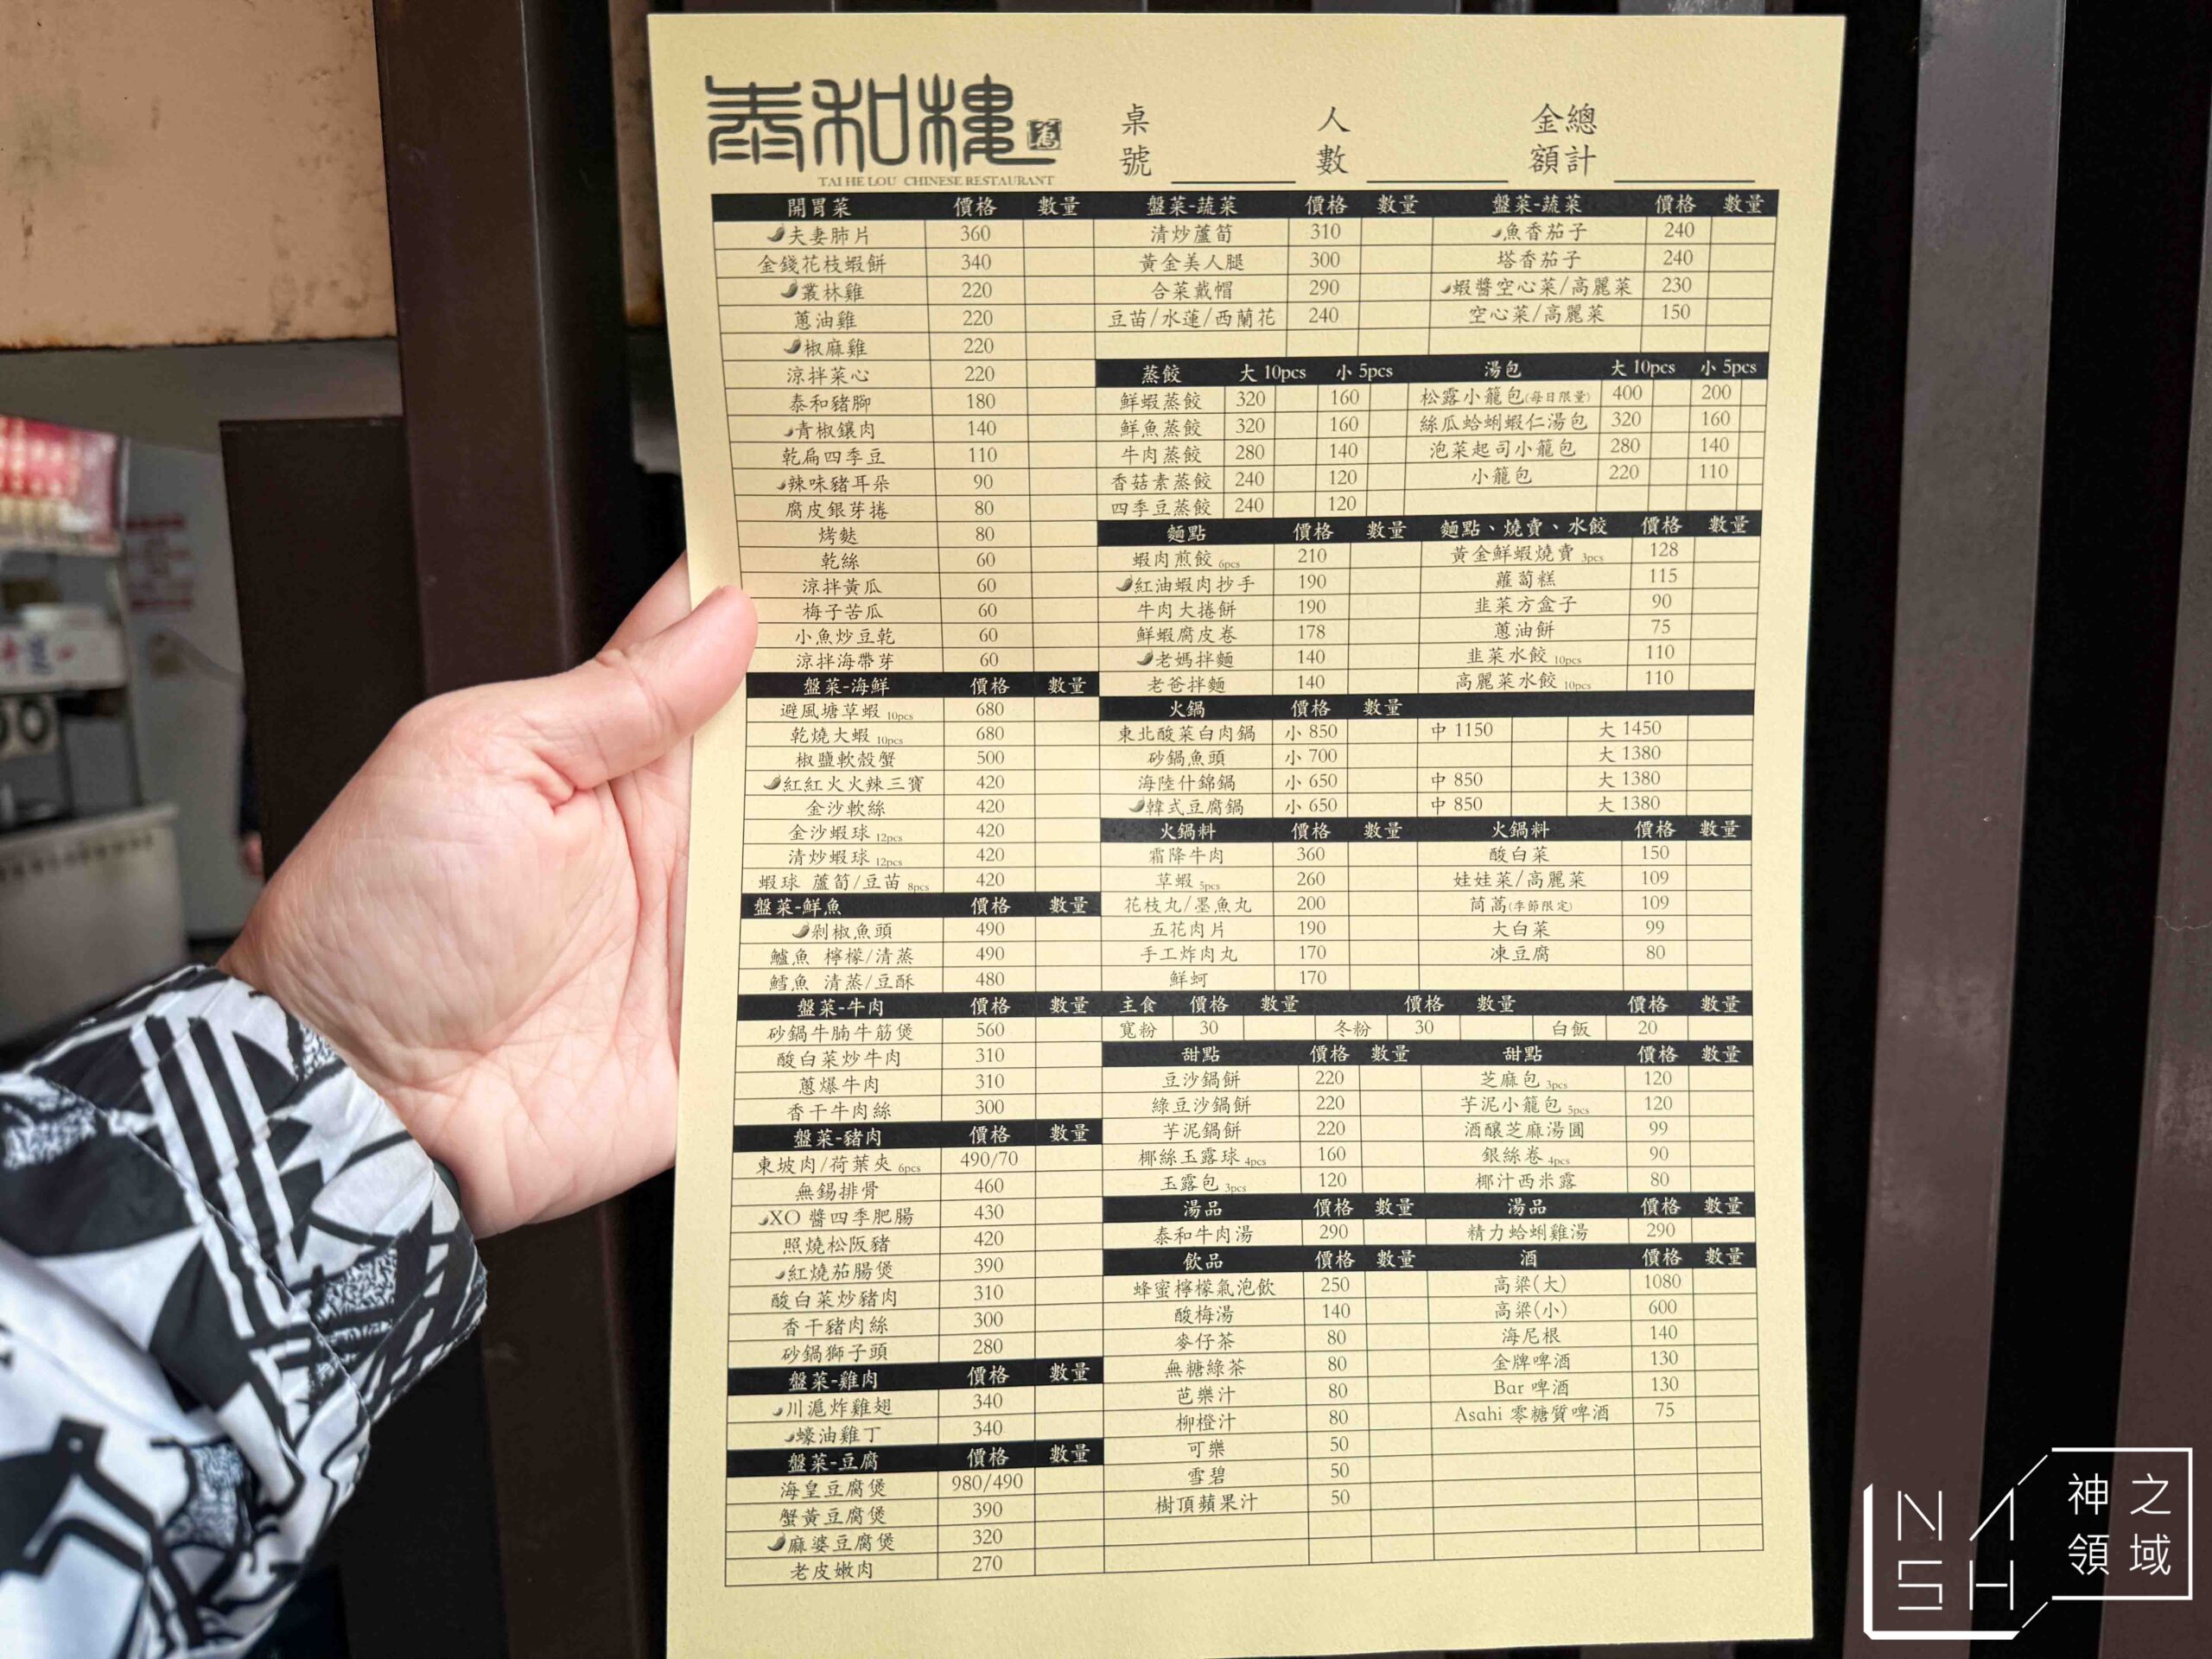 泰和樓
TAI HE LOU CHINESE RESTAURANT
桌號 人數 金額總計
開胃菜 價格 數量
夫妻肺片 360
金錢花枝蝦餅 340
叢林雞 220
蔥油雞 220
椒麻雞 220
涼拌菜心 220
泰和豬腳 180
青椒鑲肉 140
乾扁四季豆 110
辣味豬耳朵 90
腐皮銀芽捲 80
烤麩 80
乾絲 60
涼拌黃瓜 60
梅子苦瓜 60
小魚炒豆乾 60
涼拌海帶芽 60
盤菜-海鮮 價格 數量
避風塘草蝦 10pcs 680
乾燒大蝦 10pcs 680
椒鹽軟殼蟹 500
紅紅火火辣三寶 420
金沙軟絲 420
金沙蝦球 12pcs 420
清炒蝦球 12pcs 420
蝦球 蘆筍/豆苗 8pcs 420
盤菜-鮮魚 價格 數量
剁椒魚頭 490
鱸魚 檸檬/清蒸 490
鱈魚 清蒸/豆酥 480
盤菜-牛肉 價格 數量
砂鍋牛腩牛筋煲 560
酸白菜炒牛肉 310
蔥爆牛肉 310
香干牛肉絲 300
盤菜-豬肉 價格 數量
東坡肉/荷葉夾 6pcs 490/70
無錫排骨 460
XO 醬四季肥腸 430
照燒松阪豬 420
紅燒茄腸煲 390
酸白菜炒豬肉 310
香干豬肉絲 300
砂鍋獅子頭 280
盤菜-雞肉 價格 數量
川滬炸雞翅 340
蠔油雞丁 340
盤菜-豆腐 價格 數量
海皇豆腐煲 980/490
蟹黃豆腐煲 390
麻婆豆腐煲 320
老皮嫩肉 270
盤菜-蔬菜 價格 數量
清炒蘆筍 310
黃金美人腿 300
合菜戴帽 290
豆苗/水蓮/西蘭花 240
盤菜-蔬菜 價格 數量
魚香茄子 240
塔香茄子 240
蝦醬空心菜/高麗菜 230
空心菜/高麗菜 150
蒸餃 大 10pcs 小 5pcs
鮮蝦蒸餃 320 160
鮮魚蒸餃 320 160
牛肉蒸餃 280 140
香菇素蒸餃 240 120
四季豆蒸餃 240 120
湯包 大 10pcs 小 5pcs
松露小籠包(每日限量) 400 200
絲瓜蛤蜊蝦仁湯包 320 160
泡菜起司小籠包 280 140
小籠包 220 110
麵點 價格 數量
蝦肉煎餃 6pcs 210
紅油蝦肉抄手 190
牛肉大捲餅 190
鮮蝦腐皮卷 178
老媽拌麵 140
老爸拌麵 140
麵點、燒賣、水餃 價格 數量
黃金鮮蝦燒賣 3pcs 128
蘿蔔糕 115
韭菜方盒子 90
蔥油餅 75
韭菜水餃 10pcs 110
高麗菜水餃 10pcs 110
火鍋 價格 數量
東北酸菜白肉鍋 小 850 中 1150 大 1450
砂鍋魚頭 小 700 大 1380
海陸什錦鍋 小 650 中 850 大 1380
韓式豆腐鍋 小 650 中 850 大 1380
火鍋料 價格 數量
霜降牛肉 360
草蝦 5pcs 260
花枝丸/墨魚丸 200
五花肉片 190
手工炸肉丸 170
鮮蚵 170
火鍋料 價格 數量
酸白菜 150
娃娃菜/高麗菜 109
茼蒿(季節限定) 109
大白菜 99
凍豆腐 80
主食 價格 數量 價格 數量 價格 數量
寬粉 30 冬粉 30 白飯 20
甜點 價格 數量
豆沙鍋餅 220
綠豆沙鍋餅 220
芋泥鍋餅 220
椰絲玉露球 4pcs 160
玉露包 3pcs 120
甜點 價格 數量
芝麻包 3pcs 120
芋泥小籠包 5pcs 120
酒釀芝麻湯圓 99
銀絲卷 4pcs 90
椰汁西米露 80
湯品 價格 數量
泰和牛肉湯 290
湯品 價格 數量
精力蛤蜊雞湯 290
飲品 價格 數量
蜂蜜檸檬氣泡飲 250
酸梅湯 140
麥仔茶 80
無糖綠茶 80
芭樂汁 80
柳橙汁 80
可樂 50
雪碧 50
樹頂蘋果汁 50
酒 價格 數量
高粱(大) 1080
高粱(小) 600
海尼根 140
金牌啤酒 130
Bar 啤酒 130
Asahi 零糖質啤酒 75
NASH
神之領域